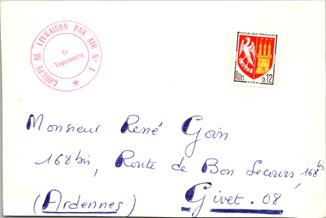 GROUPE DE LIVRAISON PAR AIR N° 1
Le
Vaguemestre
REPUBLIQUE FRANÇAISE
0,12
Monsieur René Goin
168 bis, Route de Bon Secours 168 bis
(Ardennes) Givet. 08